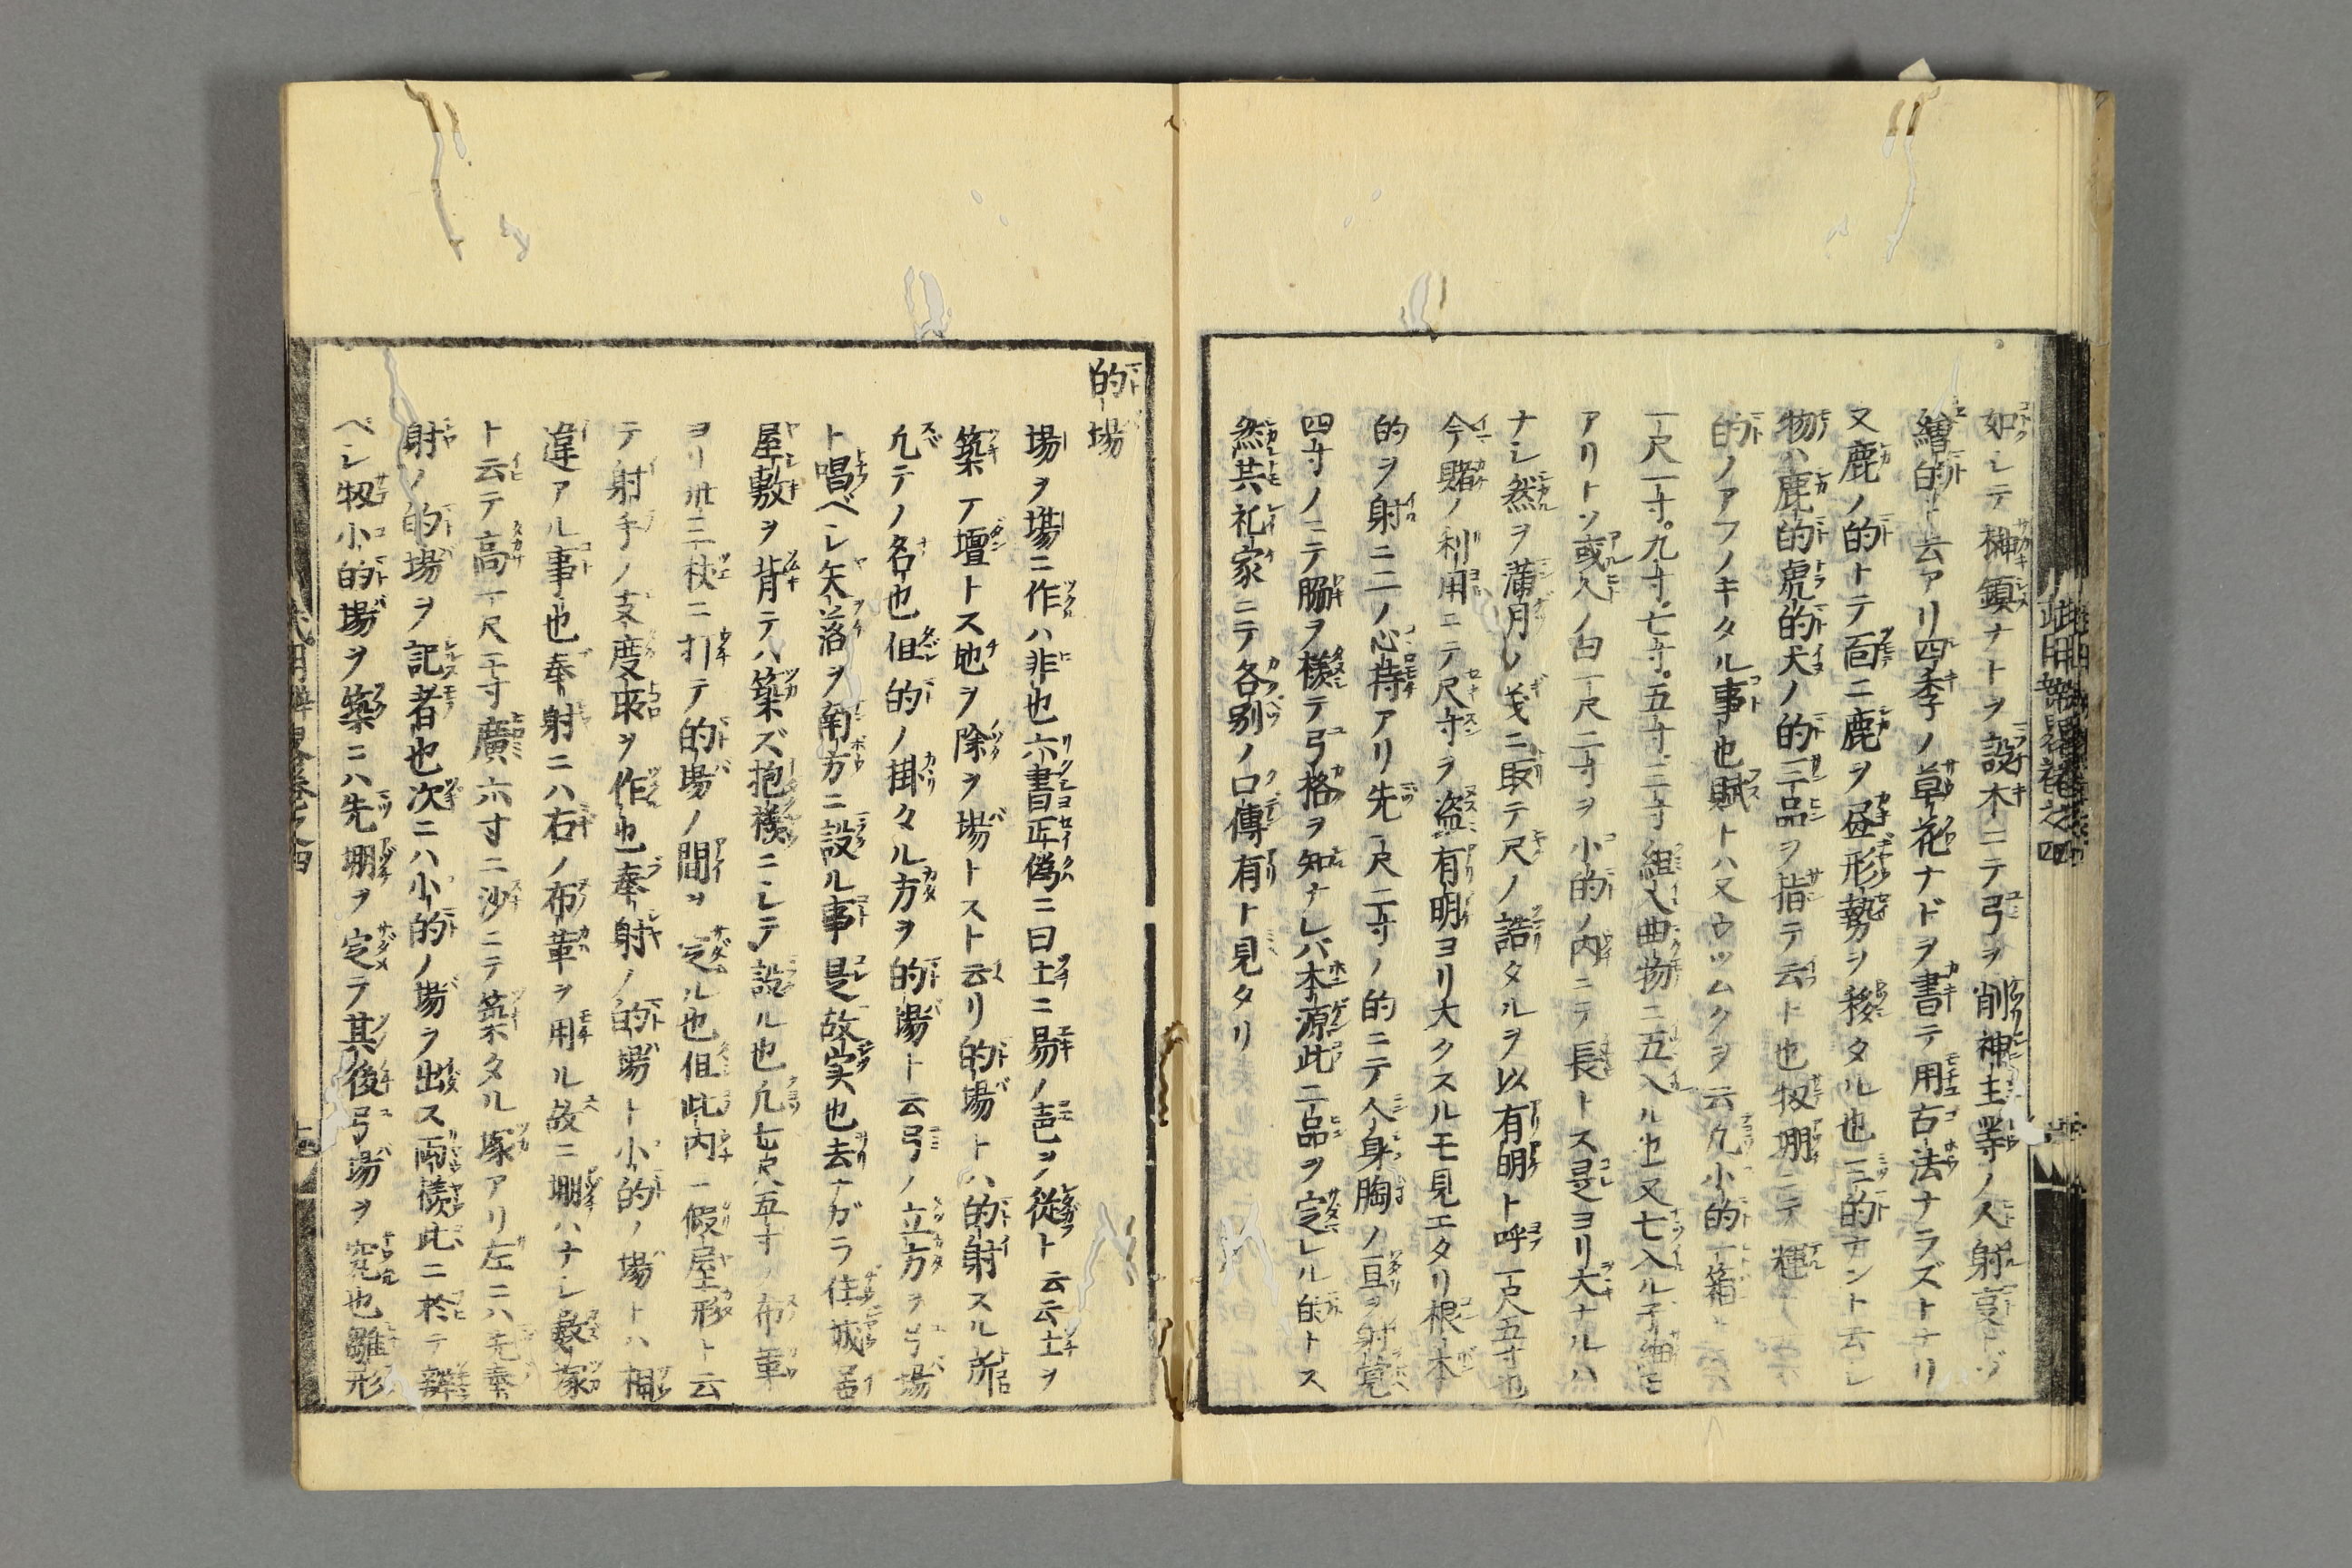 如シテ榊鎮ナトヲ設木ニテ弓ヲ削神主等ノ人射
繪的ト云アリ四季ノ草花ナドヲ書テ用古法ナラズトナリ
又鹿ノ的トテ面ニ鹿ヲ昼形勢ヲ移タル也三的ナント云シ
物ハ鹿的虎的犬ノ的三品ヲ指テ云ト也扨堋ニテ
的ノアフノキタル事也賦トハ又ウツムクヲ云凡小的一箱
一尺一寸。九寸。七寸。五寸。三寸組入曲物ニ五入ル也又七入ル子細モ
アリトソ或人ノ曰一尺二寸ヲ小的ノ内ニテ長トス是ヨリ大ナルハ
ナシ然ヲ満月ノ義ニ取テ尺ノ詰タルヲ以有明ト呼一尺五寸也
今賭ノ利用ニテ尺寸ヲ盗有明ヨリ大クスルモ見エタリ根本
的ヲ射ニ二ノ心持アリ先一尺二寸ノ的ニテ人身胸ノ亘ヲ射覚
四寸ノニテ脇ヲ様テ弓格ヲ知ナレバ本源此二品ヲ定レル的トス
然共礼家ニテ各別ノ口傳有ト見タリ
的場
場ヲ塲ニ作ハ非也六書正譌ニ曰土ニ易ノ声ヲ従ト云云土ヲ
築テ壇トス地ヲ除ヲ場トスト云リ的場トハ的射スル所
凡テノ名也但的ノ掛タル方ヲ的場ト云弓ノ立方ヲ弓場
ト唱ベシ矢落ヲ南方ニ設ル事是故実也去ナガラ住城居
屋敷ヲ背テハ築ズ抱様ニシテ設ル也凡七尺五寸ノ布革
ヨリ卅三杖ニ打テ的場ノ間ヲ定ル也但此内ニ假屋形ト云
テ射手ノ支度所ヲ作也奉射ノ的場ト小的ノ場トハ
違アル事也奉射ニハ右ノ布革ヲ用ル故ニ堋ハナシ敷塚
ト云テ高一尺二寸廣六寸ニ沙ニテ築タル塚アリ左ニハ先奉
射ノ的場ヲ記者也次ニハ小的ノ場ヲ出ス両様此ニ於テ辨
ベシ扨小的場ヲ築ニハ先堋ヲ定テ其後弓場ヲ究也雛形